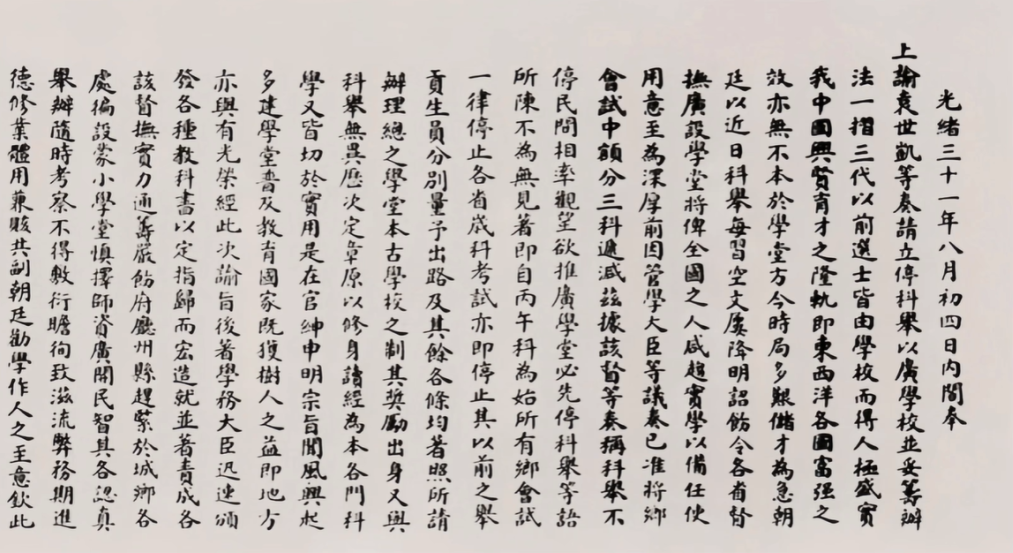 光緒三十一年八月初四日內閣奉
上諭袁世凱等奏請立停科舉以廣學校並妥籌辦
法一摺三代以前選士皆由學校而得人極盛實
我中國興賢育才之隆軌即東西洋各國富强之
效亦無不本於學堂方今時局多艱儲才為急朝
廷以近日科舉每習空文屢降明詔飭令各省督
撫廣設學堂將俾全國之人咸趨實學以備任使
用意至為深厚前因管學大臣等議奏已准將鄉
會試中額分三科遞減茲據該督等奏稱科舉不
停民間相率觀望欲推廣學堂必先停科舉等語
所陳不為無見著即自丙午科為始所有鄉會試
一律停止各省歲科考試亦即停止其以前之舉
貢生員分別量予出路及其餘各條均著照所請
辦理總之學堂本古學校之制其獎勵出身又與
科舉無異歷次定章原以修身讀經為本各門科
學又皆切於實用是在官紳申明宗旨聞風興起
多建學堂普及教育國家既獲樹人之益即地方
亦與有光榮經此次諭旨後著學務大臣迅速頒
發各種教科書以定指歸而宏造就並著責成各
該督撫實力通籌嚴飭府廳州縣趕緊於城鄉各
處徧設蒙小學堂慎擇師資廣開民智其各認真
舉辦隨時考察不得敷衍瞻徇致滋流弊務期進
德修業體用兼賅共副朝廷勸學作人之至意欽此